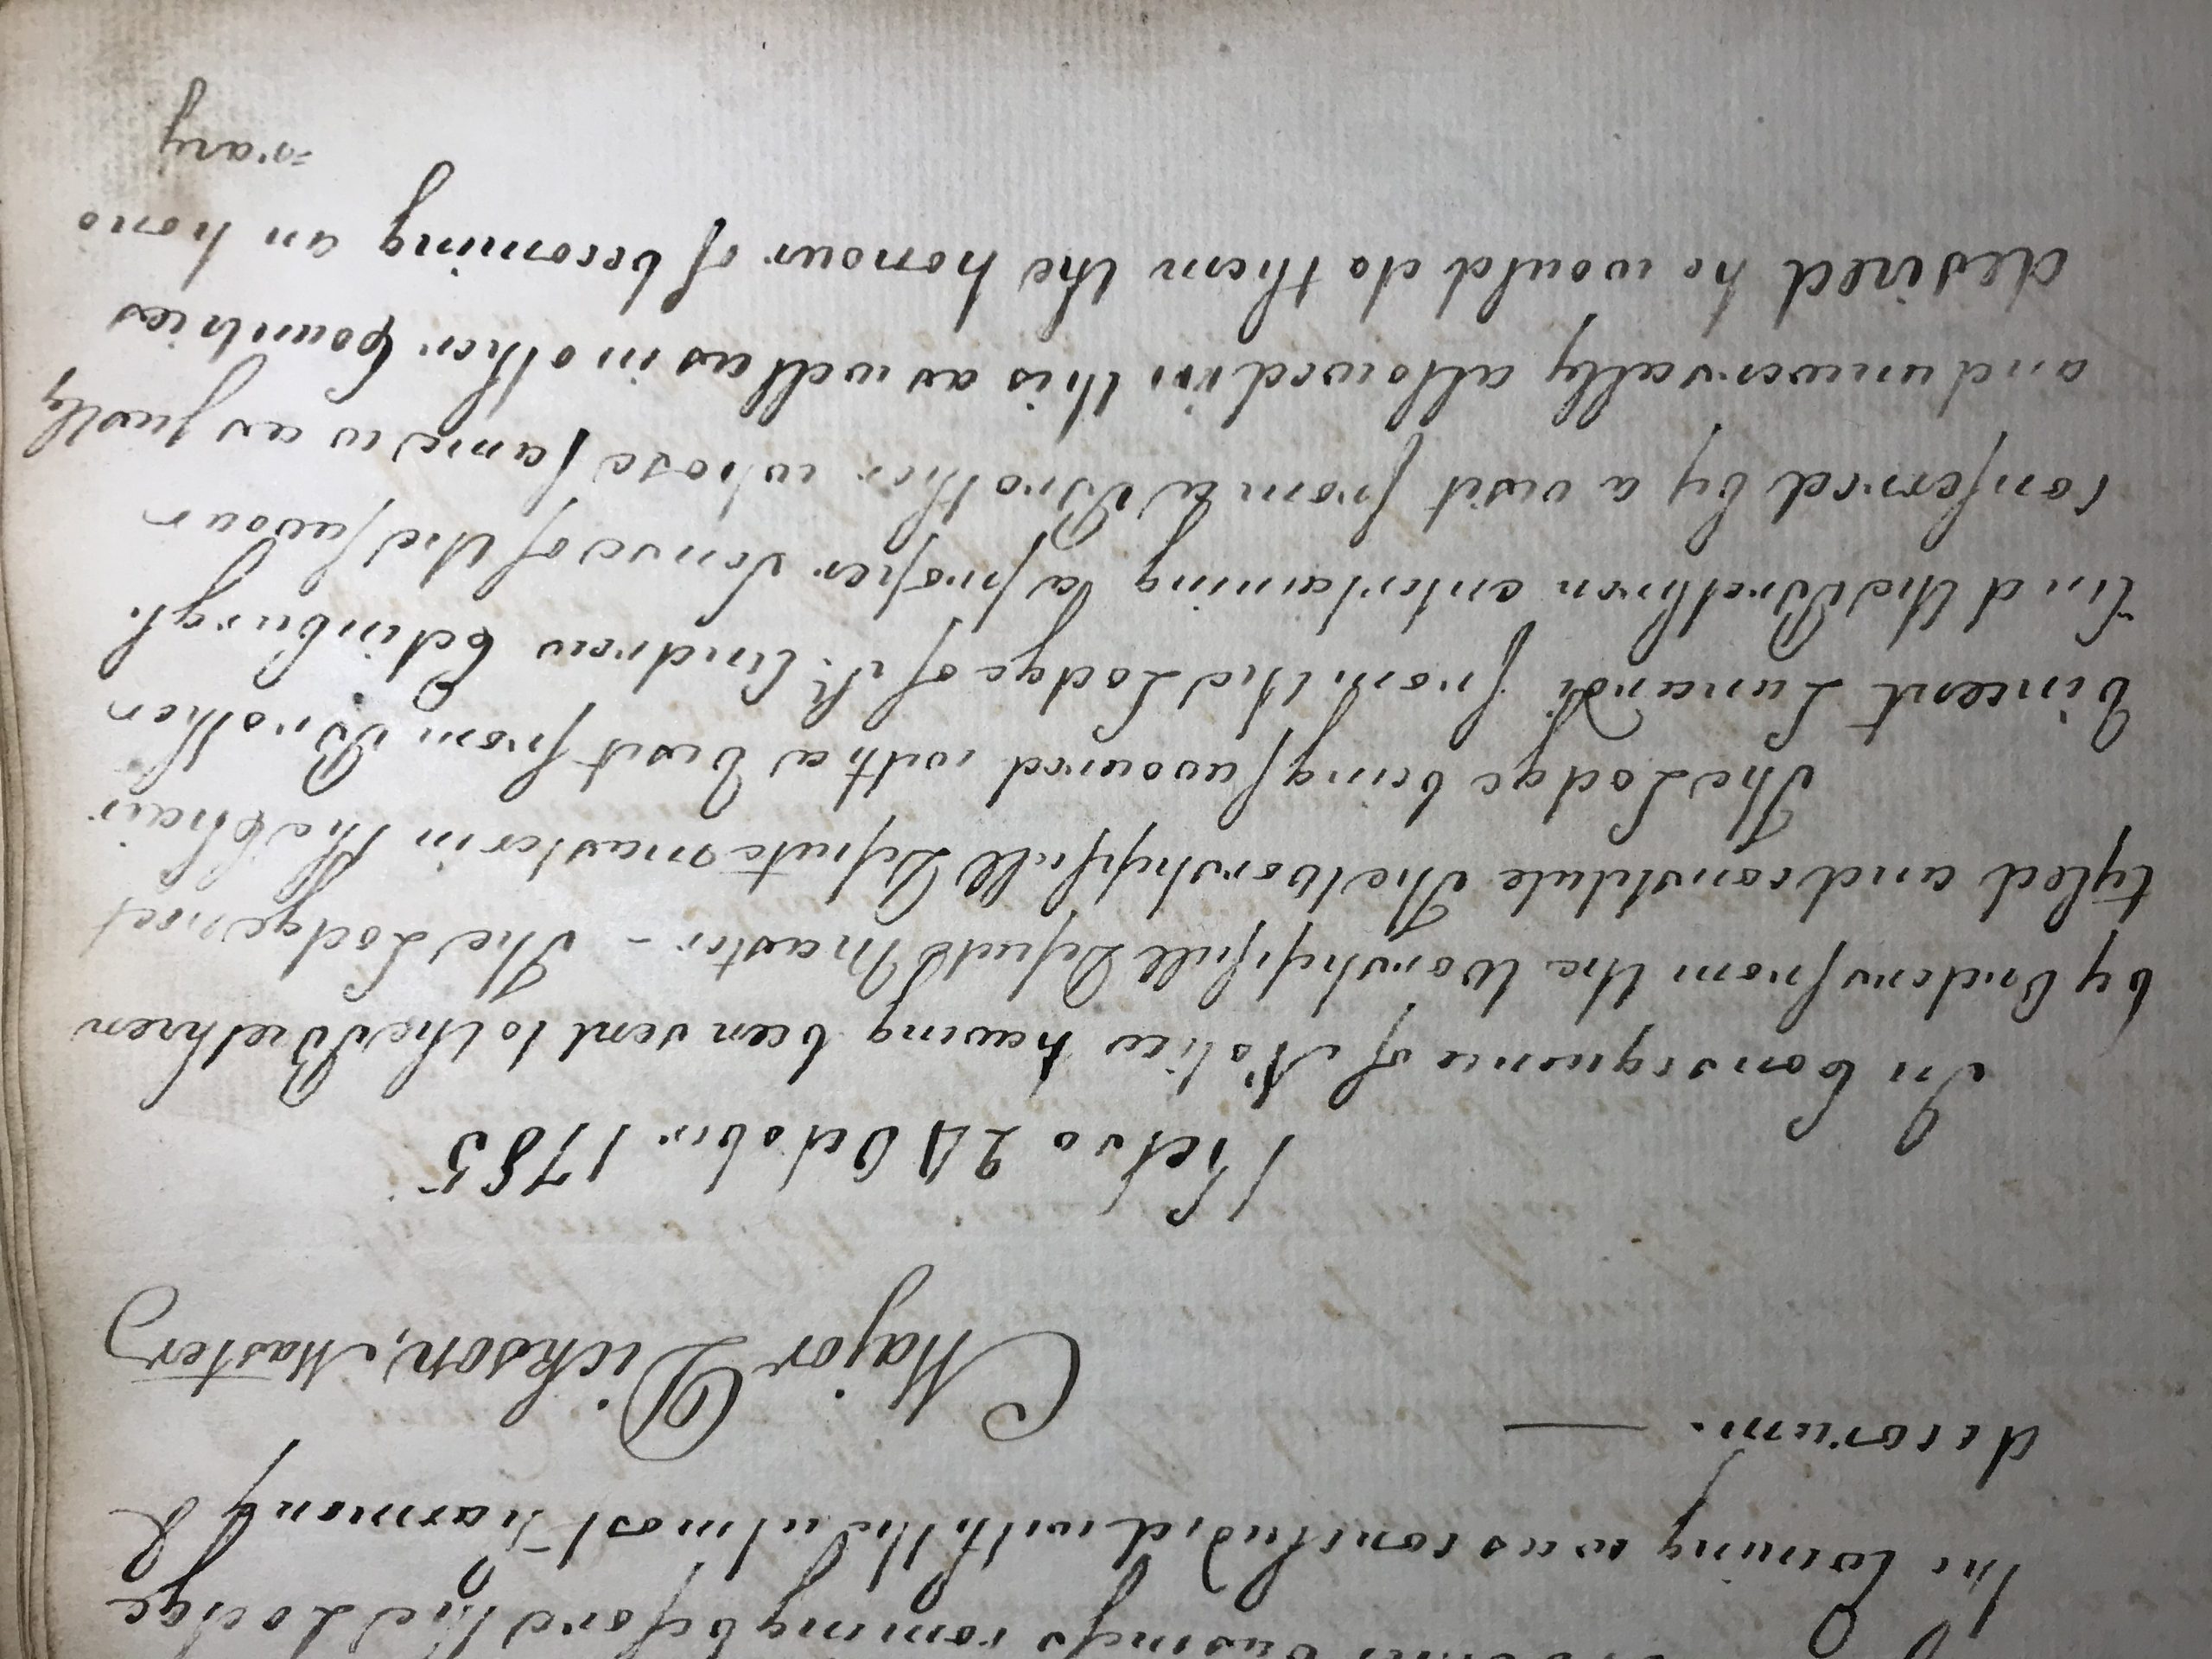 business coming before the Lodge
the Evening was concluded with the utmost Harmony &
decorum. —
Major Dickson, Master
Kelso 24 October 1785
In Consequence of Notice having been sent to the Brethren
by Orders from the Worshipfull Depute Master - The Lodge met
tyled and constitute The Worshipfull Depute Master in the Chair
The Lodge being favoured with a Visit from Brother
Vincent Lunardi from the Lodge of St. Andrew Edinburgh.
And the Brethren entertaining a proper Sense of the favour
conferred by a visit from a Brother whose fame was justly
and universally allowed in this as well as in other Countries
desired he would do them the honour of becoming an hono
=rary